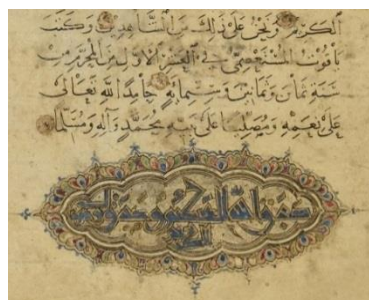 الكريم ونحن على ذلك من الشاهدين وكتب
ياقوت المستعصمي في العشر الأول من المحرم من
سنة ثمان وثمانين وستمائة حامدا لله تعالى
على نعمه ومصليا على نبيه محمد وآله ومسلما